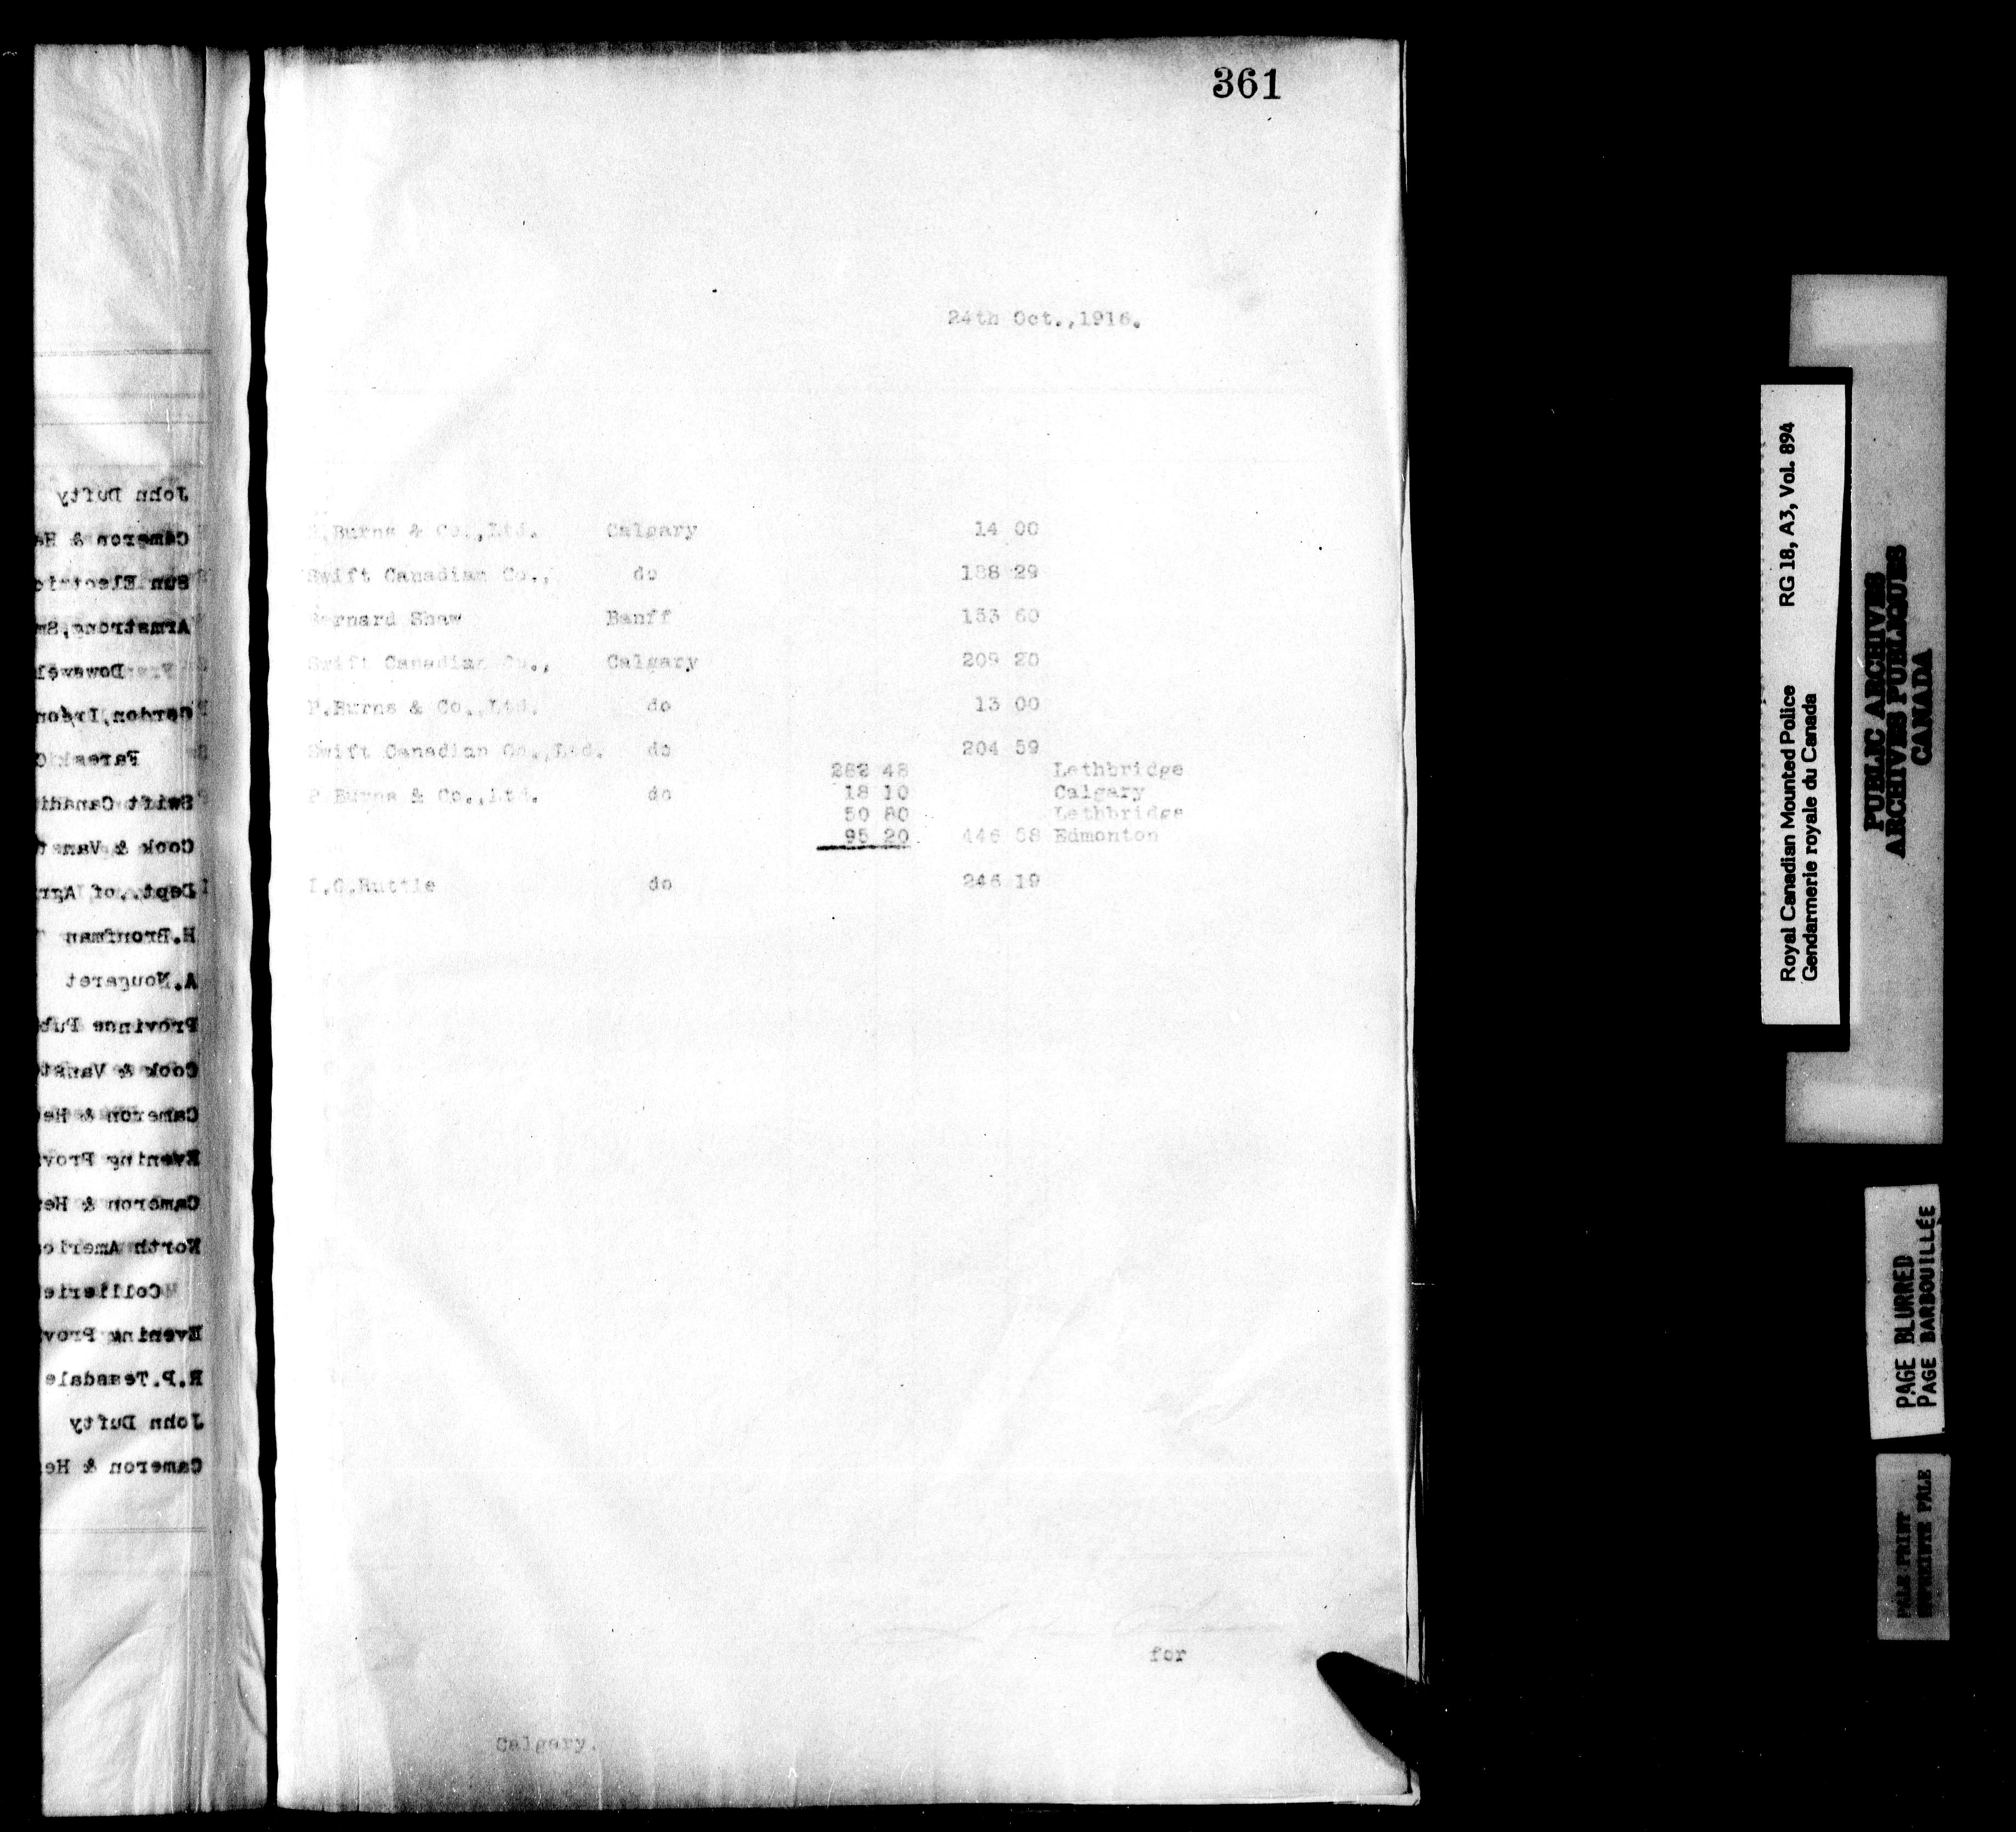 361
24th Oct.,1916.
P.Burns & Co.,Ltd. Calgary 14 00
Swift Canadian Co., do 188 29
Bernard Shaw Banff 153 60
Swift Canadian Co., Calgary 209 20
P.Burns & Co.,Ltd. do 13 00
Swift Canadian Co.,Ltd. do 204 59
282 48 Lethbridge
P.Burns & Co.,Ltd. do 18 10 Calgary
50 80 Lethbridge
95 20 446 58 Edmonton
do 246 19
for
Calgary.
John Dufty
Cameron & He
Sun Electric
Armstrong,Sm
Dowswel
Gordon,Iron
Swift Canadi
Cook & Vanst
Dept. of Agr
H.Bronfman
A.Nougaret
Province Pub
Cook & Vanst
Cameron & He
Evening Prov
Cameron & He
North Americ
Collierie
Evening Prov
R.P.Teasdale
John Dufty
Cameron & He
Royal Canadian Mounted Police RG 18, A3, Vol. 894
Gendarmerie royale du Canada
PUBLIC ARCHIVES
ARCHIVES PUBLIQUES
CANADA
PAGE BLURRED
PAGE BARBOUILLÉE
PALE PRINT
PALE